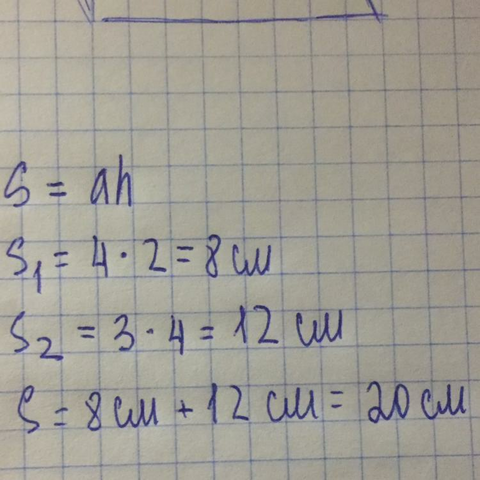 S = ah
S₁ = 4 · 2 = 8 см
S₂ = 3 · 4 = 12 см
S = 8 см + 12 см = 20 см